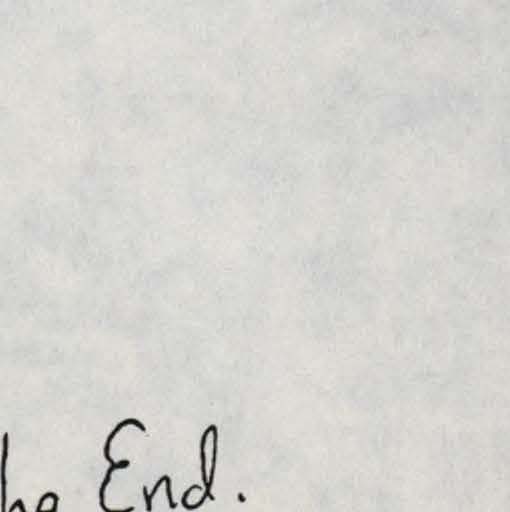 he End.